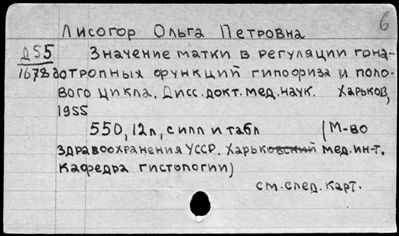 6
Лисогор Ольга Петровна
Д55
1678
Значение матки в регуляции гона-
дотропных функций гипофиза и поло-
вого цикла. Дисс. докт. мед. наук. Харьков,
1955
550, 12 л, с илл и табл (М-во
здравоохранения УССР. Харьковский мед. ин-т.
Кафедра гистологии)
см. след. карт.